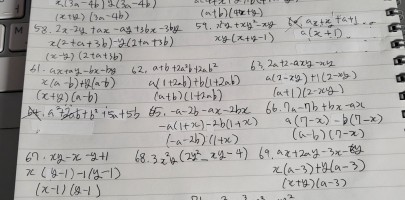 x(3a-4b) y(3a-4b)
(x+y)(3a-4b)
(a+b)(4x+y)
58. 2x-2y+ax-ay+3bx-3by
x(2+a+3b)-y(2+a+3b)
(x-y)(2+a+3b)
xy(x+y-1)
ax+x+a+1
a(x+1)
61. ax+ay-bx-by
x(a-b)+y(a-b)
(x+y)(a-b)
62. a+b+2a²b+2ab²
a(1+2ab)+b(1+2ab)
(a+b)(1+2ab)
63. 2a+2-axy-xy
a(2-xy)+1(2-xy)
(a+1)(2-xy)
64. a²+2ab+b²+5a+5b
65. -a-2b-ax-2bx
-a(1+x)-2b(1+x)
(-a-2b)(1+x)
66. 7a-7b+bx-ax
a(7-x)-b(7-x)
(a-b)(7-x)
67. xy-x-y+1
x(y-1)-1(y-1)
(x-1)(y-1)
68. 3x²y(2y²-xy-4)
69. ax+2ay-3x-
x(a-3)+y(a-3)
(x+y)(a-3)